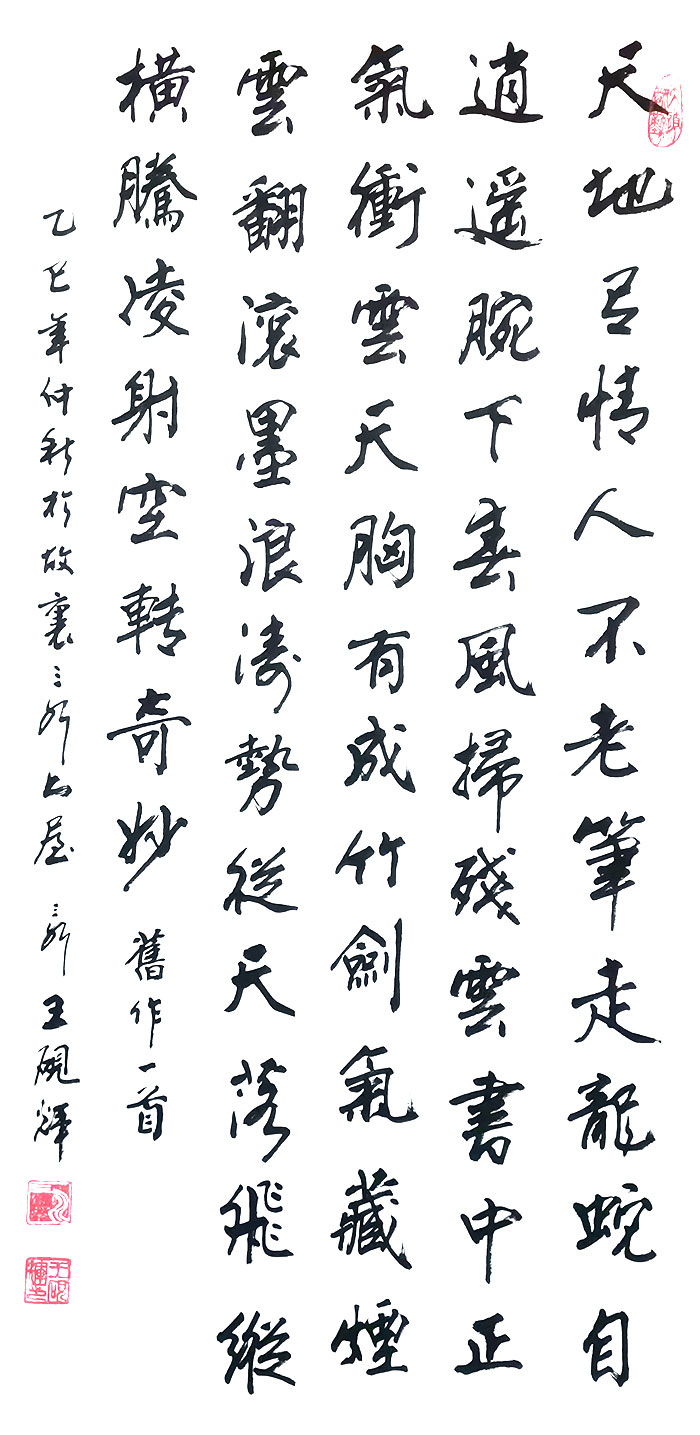 天地有情人不老筆走龍蛇自
逍遥腕下春風掃殘雲書中正
氣衝雲天胸有成竹劍氣藏煙
雲翻滾墨浪濤勢從天落飛縱
橫騰凌射空轉奇妙 舊作一首
乙巳年仲秋於故裏三山屋 三王硯輝